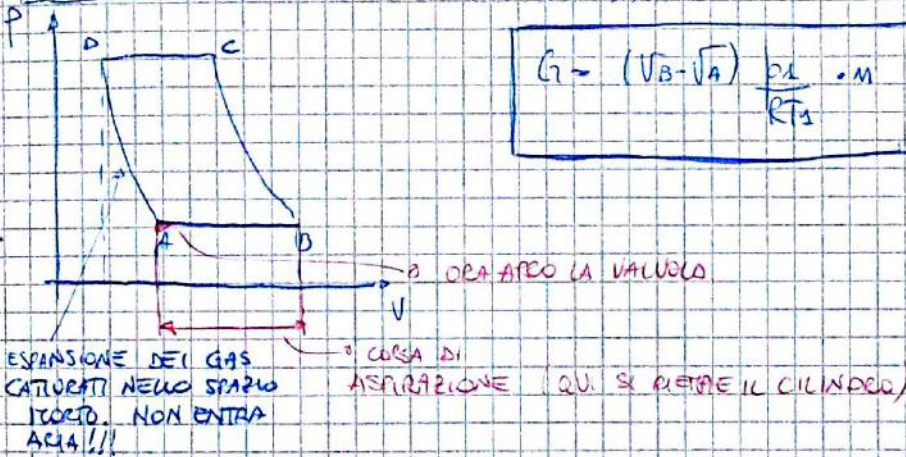 P
D
C
G = (VB - VA) p1/RT1 · M
A
B
ORA APRO LA VALVOLA
V
ESPANSIONE DEI GAS
CATTURATI NELLO SPAZIO
MORTO. NON ENTRA
ARIA!!!
CORSA DI
ASPIRAZIONE (QUI SI RIEMPIE IL CILINDRO)